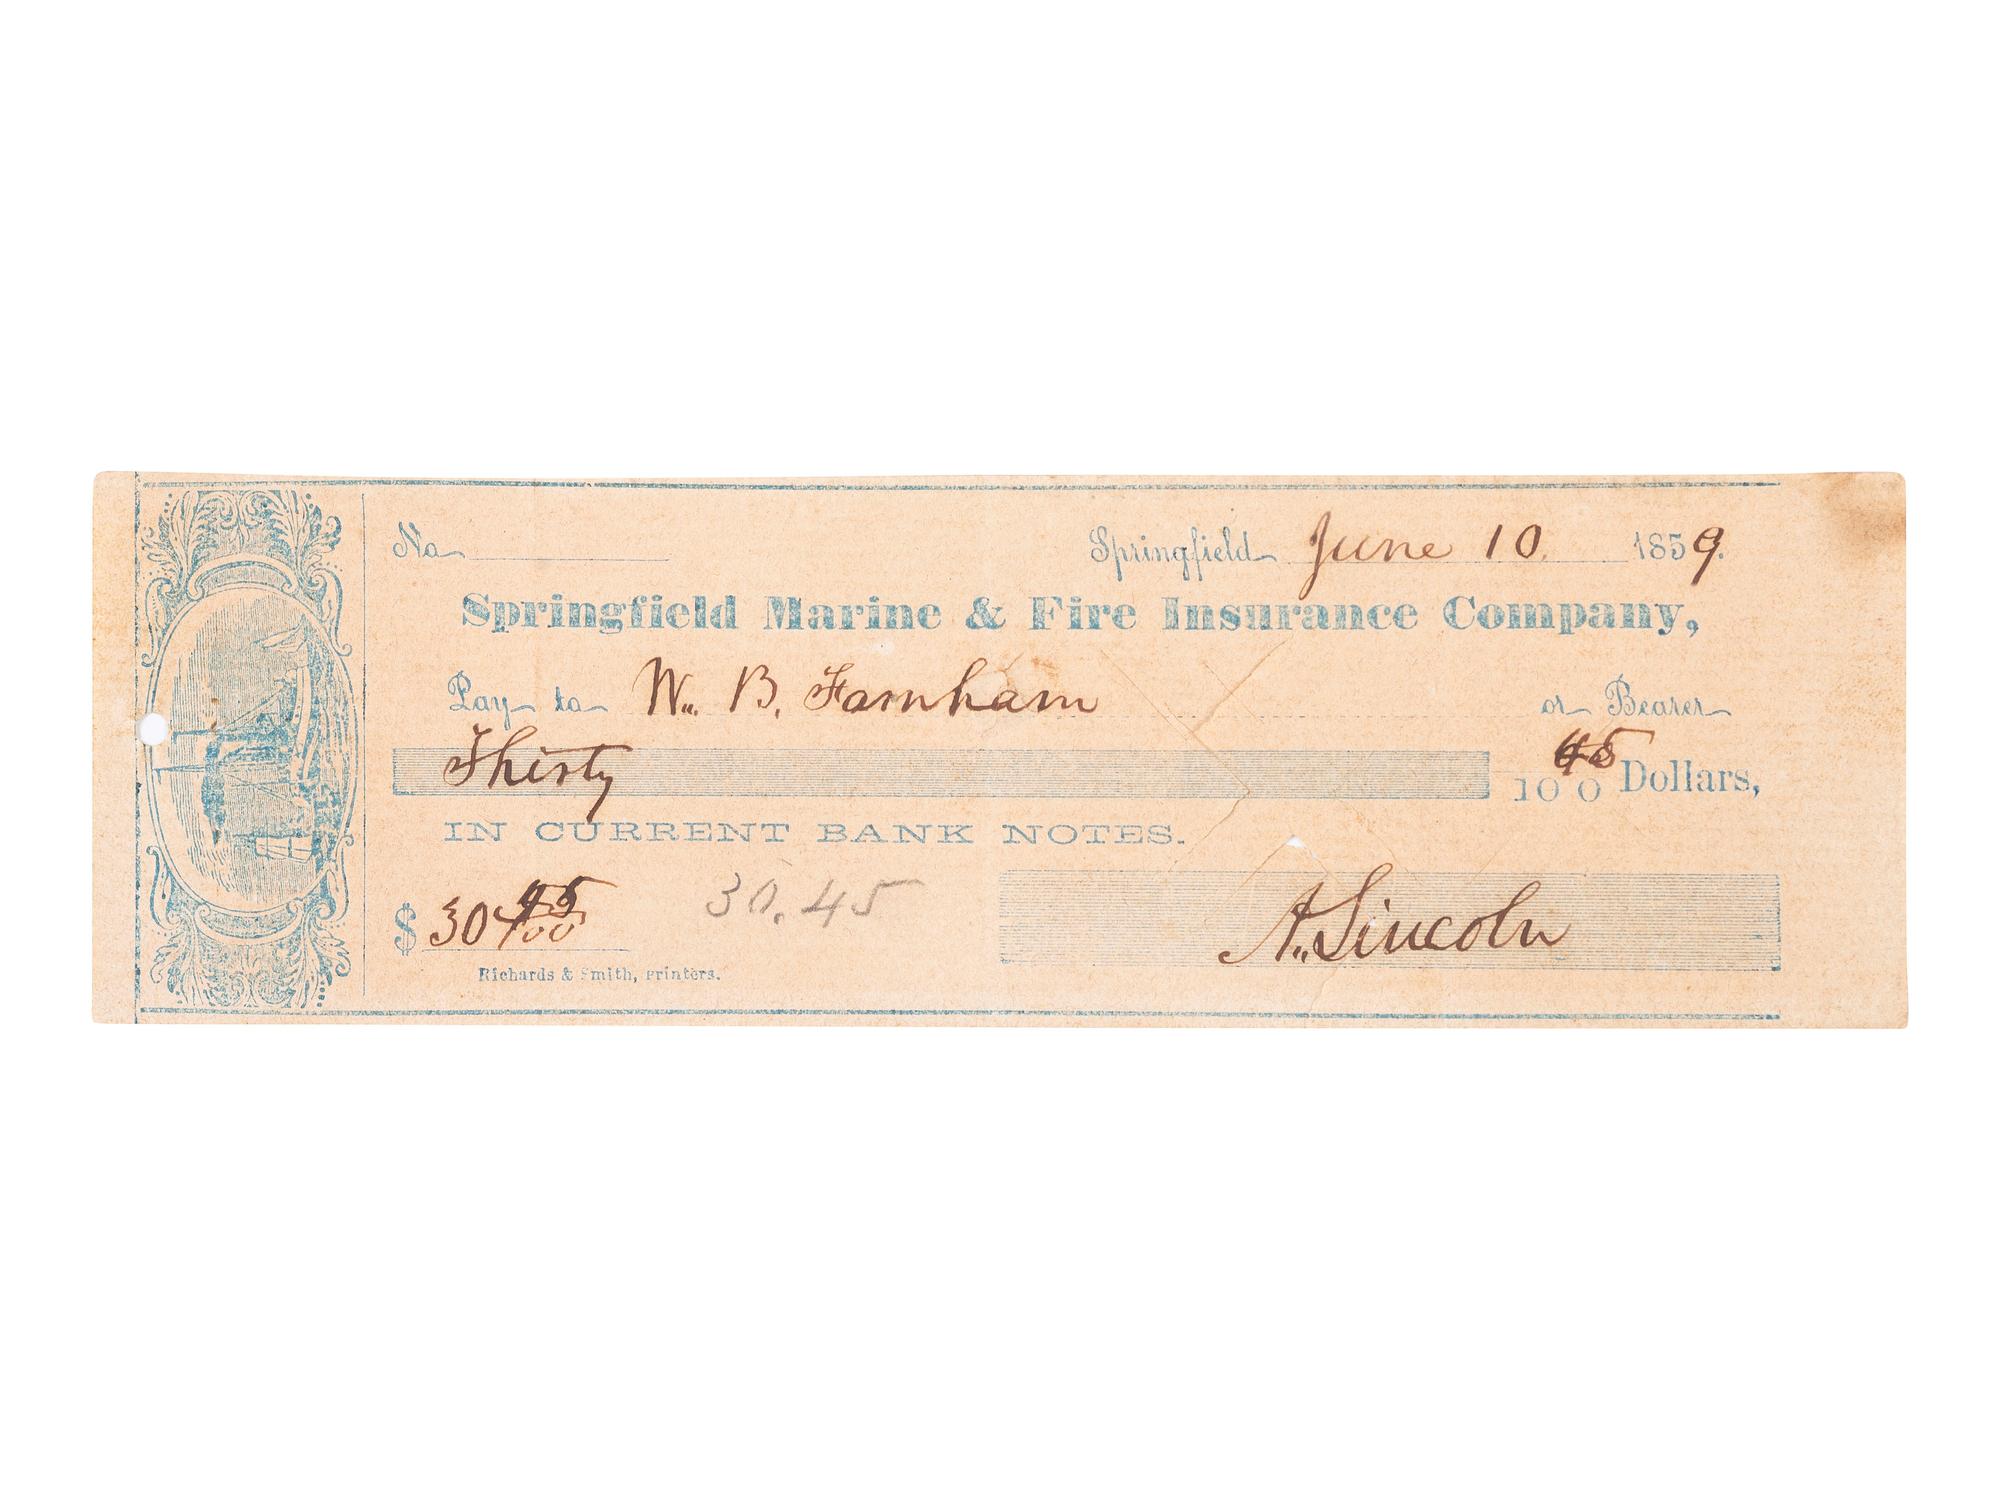 No Springfield June 10. 1859.
Springfield Marine & Fire Insurance Company,
Pay to W. B. Farnham or Bearer
Thirty 45/100 Dollars,
IN CURRENT BANK NOTES.
$30 45/100 30.45
A. Lincoln
Richards & Smith, Printers.